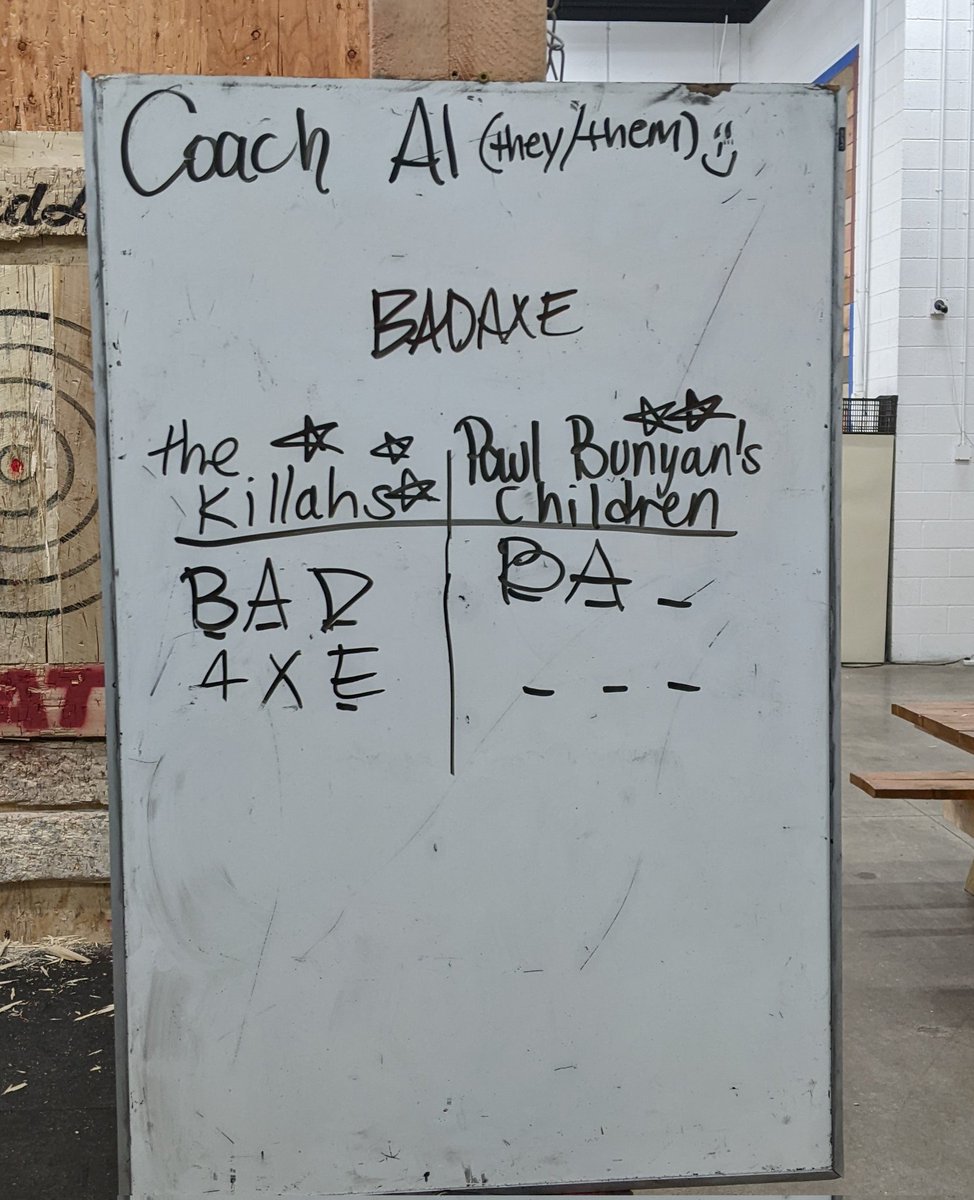 Coach Al (they/them)
BADAXE
the Killahs
Paul Bunyan's Children
BAD
AXE
BA_
_ _ _